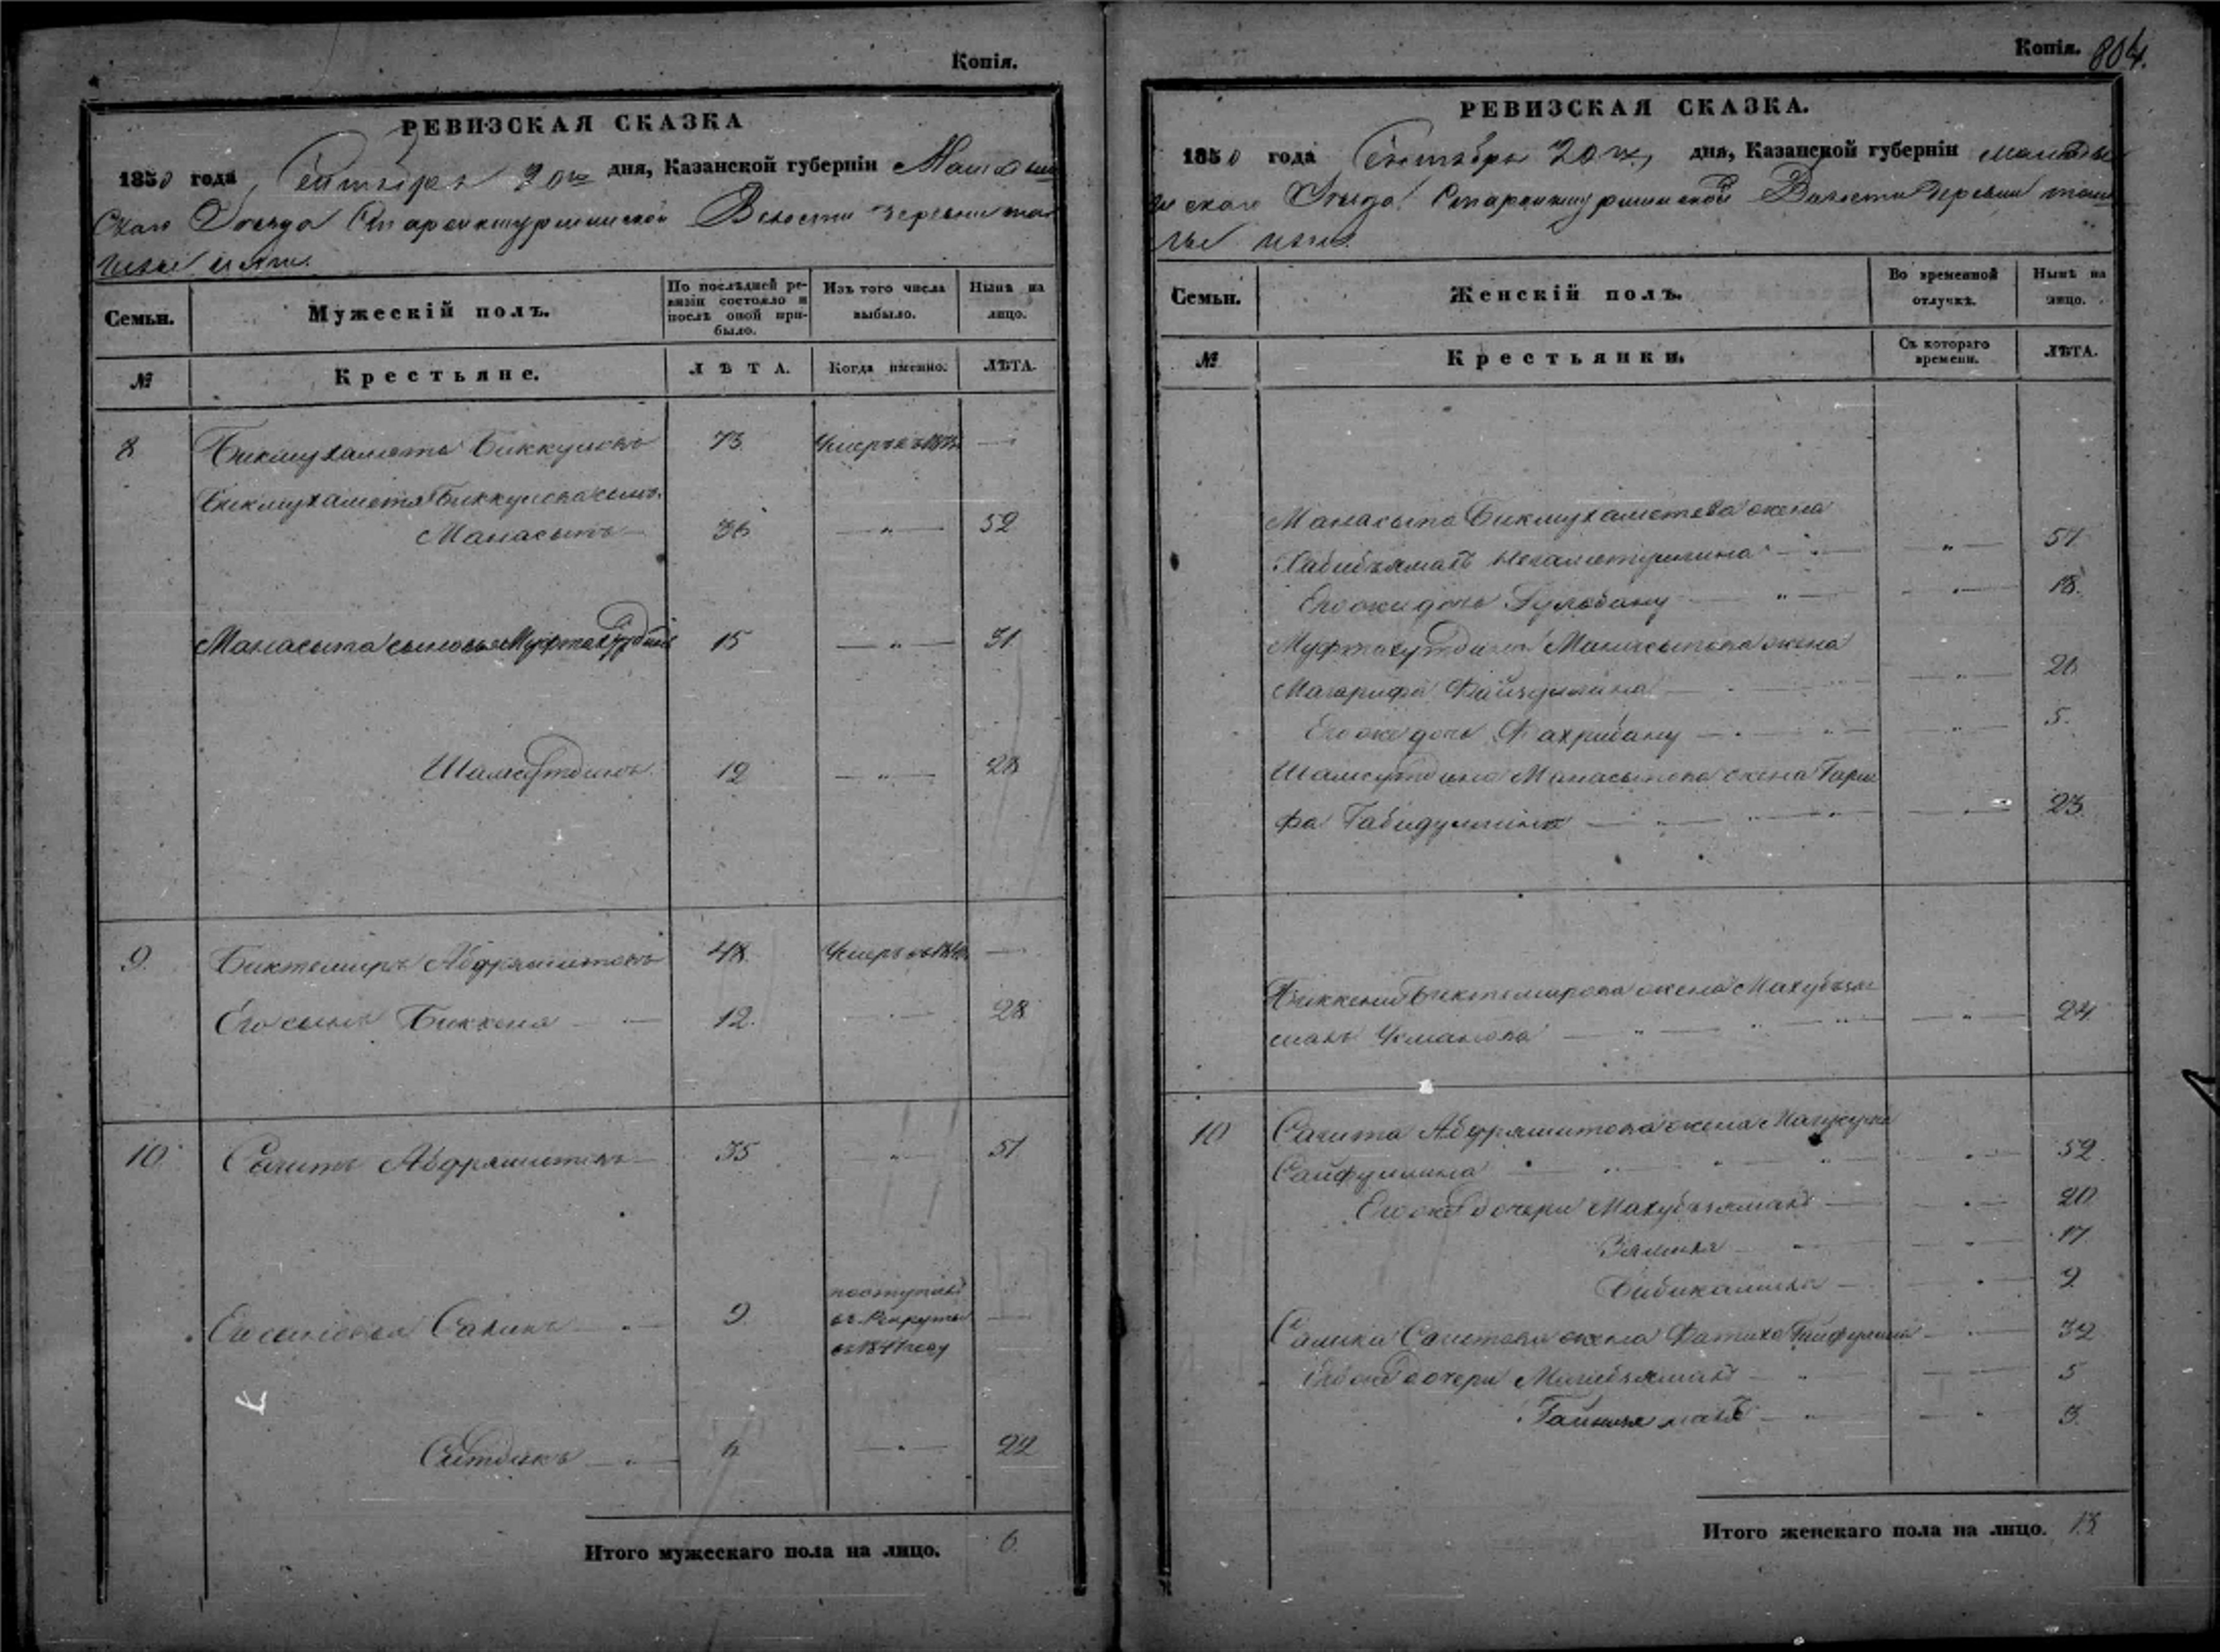 Копія.
РЕВИЗСКАЯ СКАЗКА
1850 года Сентября 20го дня, Казанской губерніи Мамадыш
скаго Уѣзда Староикшурминской Волости деревни
Семьи.
Мужескій полъ.
По послѣдней ре-
визіи состояло и
послѣ оной при-
было.
Изъ того числа
выбыло.
Нынѣ на
лицо.
№
Крестьяне.
ЛѢТА.
Когда именно.
ЛѢТА.
8 Бикмухаметъ Биккуловъ 73 Умеръ въ —
Бикмухаметя Биккулова сынъ
Манасыпъ 36 — " — 52
Манасыпа сыновья Муфтахутдинъ 15 — " — 31
Шамсутдинъ 12 — " — 28
9. Биктемиръ Абдряшитовъ 48 Умеръ въ —
Его сынъ Биккеня 12. 28
10 Сагитъ Абдряшитовъ 35 " 51
поступилъ
Его сыновья Салихъ 9 въ Рекруты —
въ 1841 году
Ситдикъ 6 — " — 22
Итого мужескаго пола на лицо. 6.
Копія. 804.
РЕВИЗСКАЯ СКАЗКА.
1850 года Сентября 20го дня, Казанской губерніи Мамады
скаго Уѣзда Староикшурминской Волости деревни
Семьи.
Женскій полъ.
Во временной
отлучкѣ.
Нынѣ на
лицо.
№
Крестьянки.
Съ котораго
времени.
ЛѢТА.
Манасыпа Бикмухаметева жена
Хабибъямалъ Негаметуллина — " — 51
Его же дочь Гулебану — " — 18.
Муфтахутдина Манасыпова жена
Магарифа Файзуллина — " — 26
Его же дочь Фахрибану — 5.
Шамсутдина Манасыпова жена Гари
фа Габидуллина — 23
Биккени Биктемирова жена Махубзя
малъ Усманова — " — 24
10 Сагита Абдряшитова жена
Сайфуллина 52.
Его же дочери Махубзямалъ 20
17
Бибикамиля 9
Салиха Сагитова жена Фатиха 32
Его же дочери 5
3.
Итого женскаго пола на лицо. 13